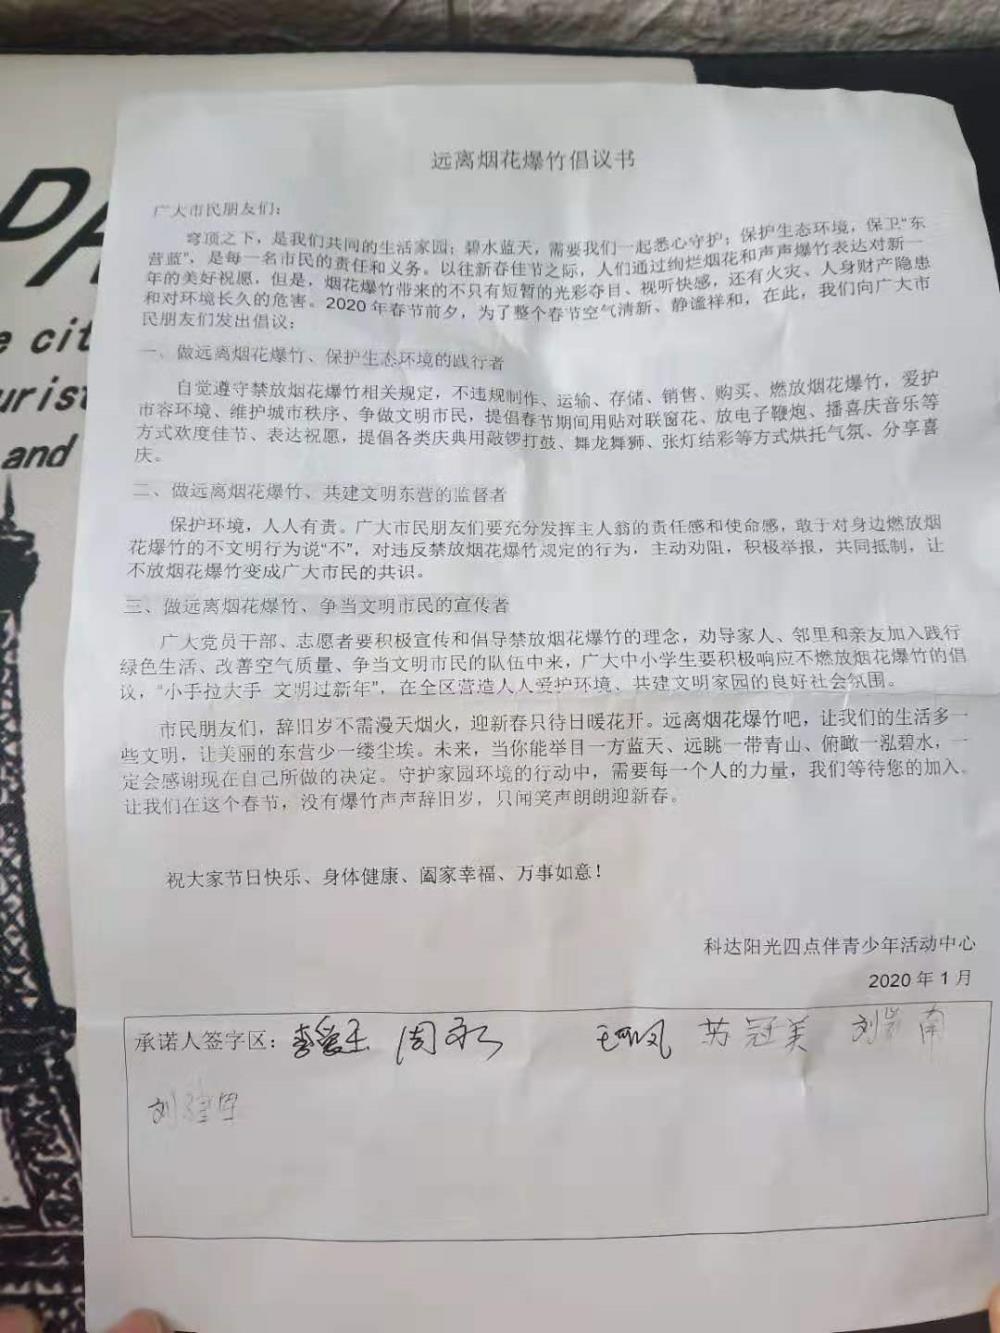 DA
e cit
urist
and
远离烟花爆竹倡议书
广大市民朋友们：
穹顶之下，是我们共同的生活家园；碧水蓝天，需要我们一起悉心守护；保护生态环境，保卫“东
营蓝”，是每一名市民的责任和义务。以往新春佳节之际，人们通过绚烂烟花和声声爆竹表达对新一
年的美好祝愿，但是，烟花爆竹带来的不只有短暂的光彩夺目、视听快感，还有火灾、人身财产隐患
和对环境长久的危害。2020年春节前夕，为了整个春节空气清新、静谧祥和，在此，我们向广大市
民朋友们发出倡议：
一、做远离烟花爆竹、保护生态环境的践行者
自觉遵守禁放烟花爆竹相关规定，不违规制作、运输、存储、销售、购买、燃放烟花爆竹，爱护
市容环境、维护城市秩序、争做文明市民，提倡春节期间用贴对联窗花、放电子鞭炮、播喜庆音乐等
方式欢度佳节、表达祝愿，提倡各类庆典用敲锣打鼓、舞龙舞狮、张灯结彩等方式烘托气氛、分享喜
庆。
二、做远离烟花爆竹、共建文明东营的监督者
保护环境，人人有责。广大市民朋友们要充分发挥主人翁的责任感和使命感，敢于对身边燃放烟
花爆竹的不文明行为说“不”，对违反禁放烟花爆竹规定的行为，主动劝阻，积极举报，共同抵制，让
不放烟花爆竹变成广大市民的共识。
三、做远离烟花爆竹、争当文明市民的宣传者
广大党员干部、志愿者要积极宣传和倡导禁放烟花爆竹的理念，劝导家人、邻里和亲友加入践行
绿色生活、改善空气质量、争当文明市民的队伍中来，广大中小学生要积极响应不燃放烟花爆竹的倡
议，“小手拉大手 文明过新年”，在全区营造人人爱护环境、共建文明家园的良好社会氛围。
市民朋友们，辞旧岁不需漫天烟火，迎新春只待日暖花开。远离烟花爆竹吧，让我们的生活多一
些文明，让美丽的东营少一缕尘埃。未来，当你能举目一方蓝天、远眺一带青山、俯瞰一泓碧水，一
定会感谢现在自己所做的决定。守护家园环境的行动中，需要每一个人的力量，我们等待您的加入。
让我们在这个春节，没有爆竹声声辞旧岁，只闻笑声朗朗迎新春。
祝大家节日快乐、身体健康、阖家幸福、万事如意！
科达阳光四点伴青少年活动中心
2020年1月
承诺人签字区：李爱玉 周永 苏冠美 刘 南
刘